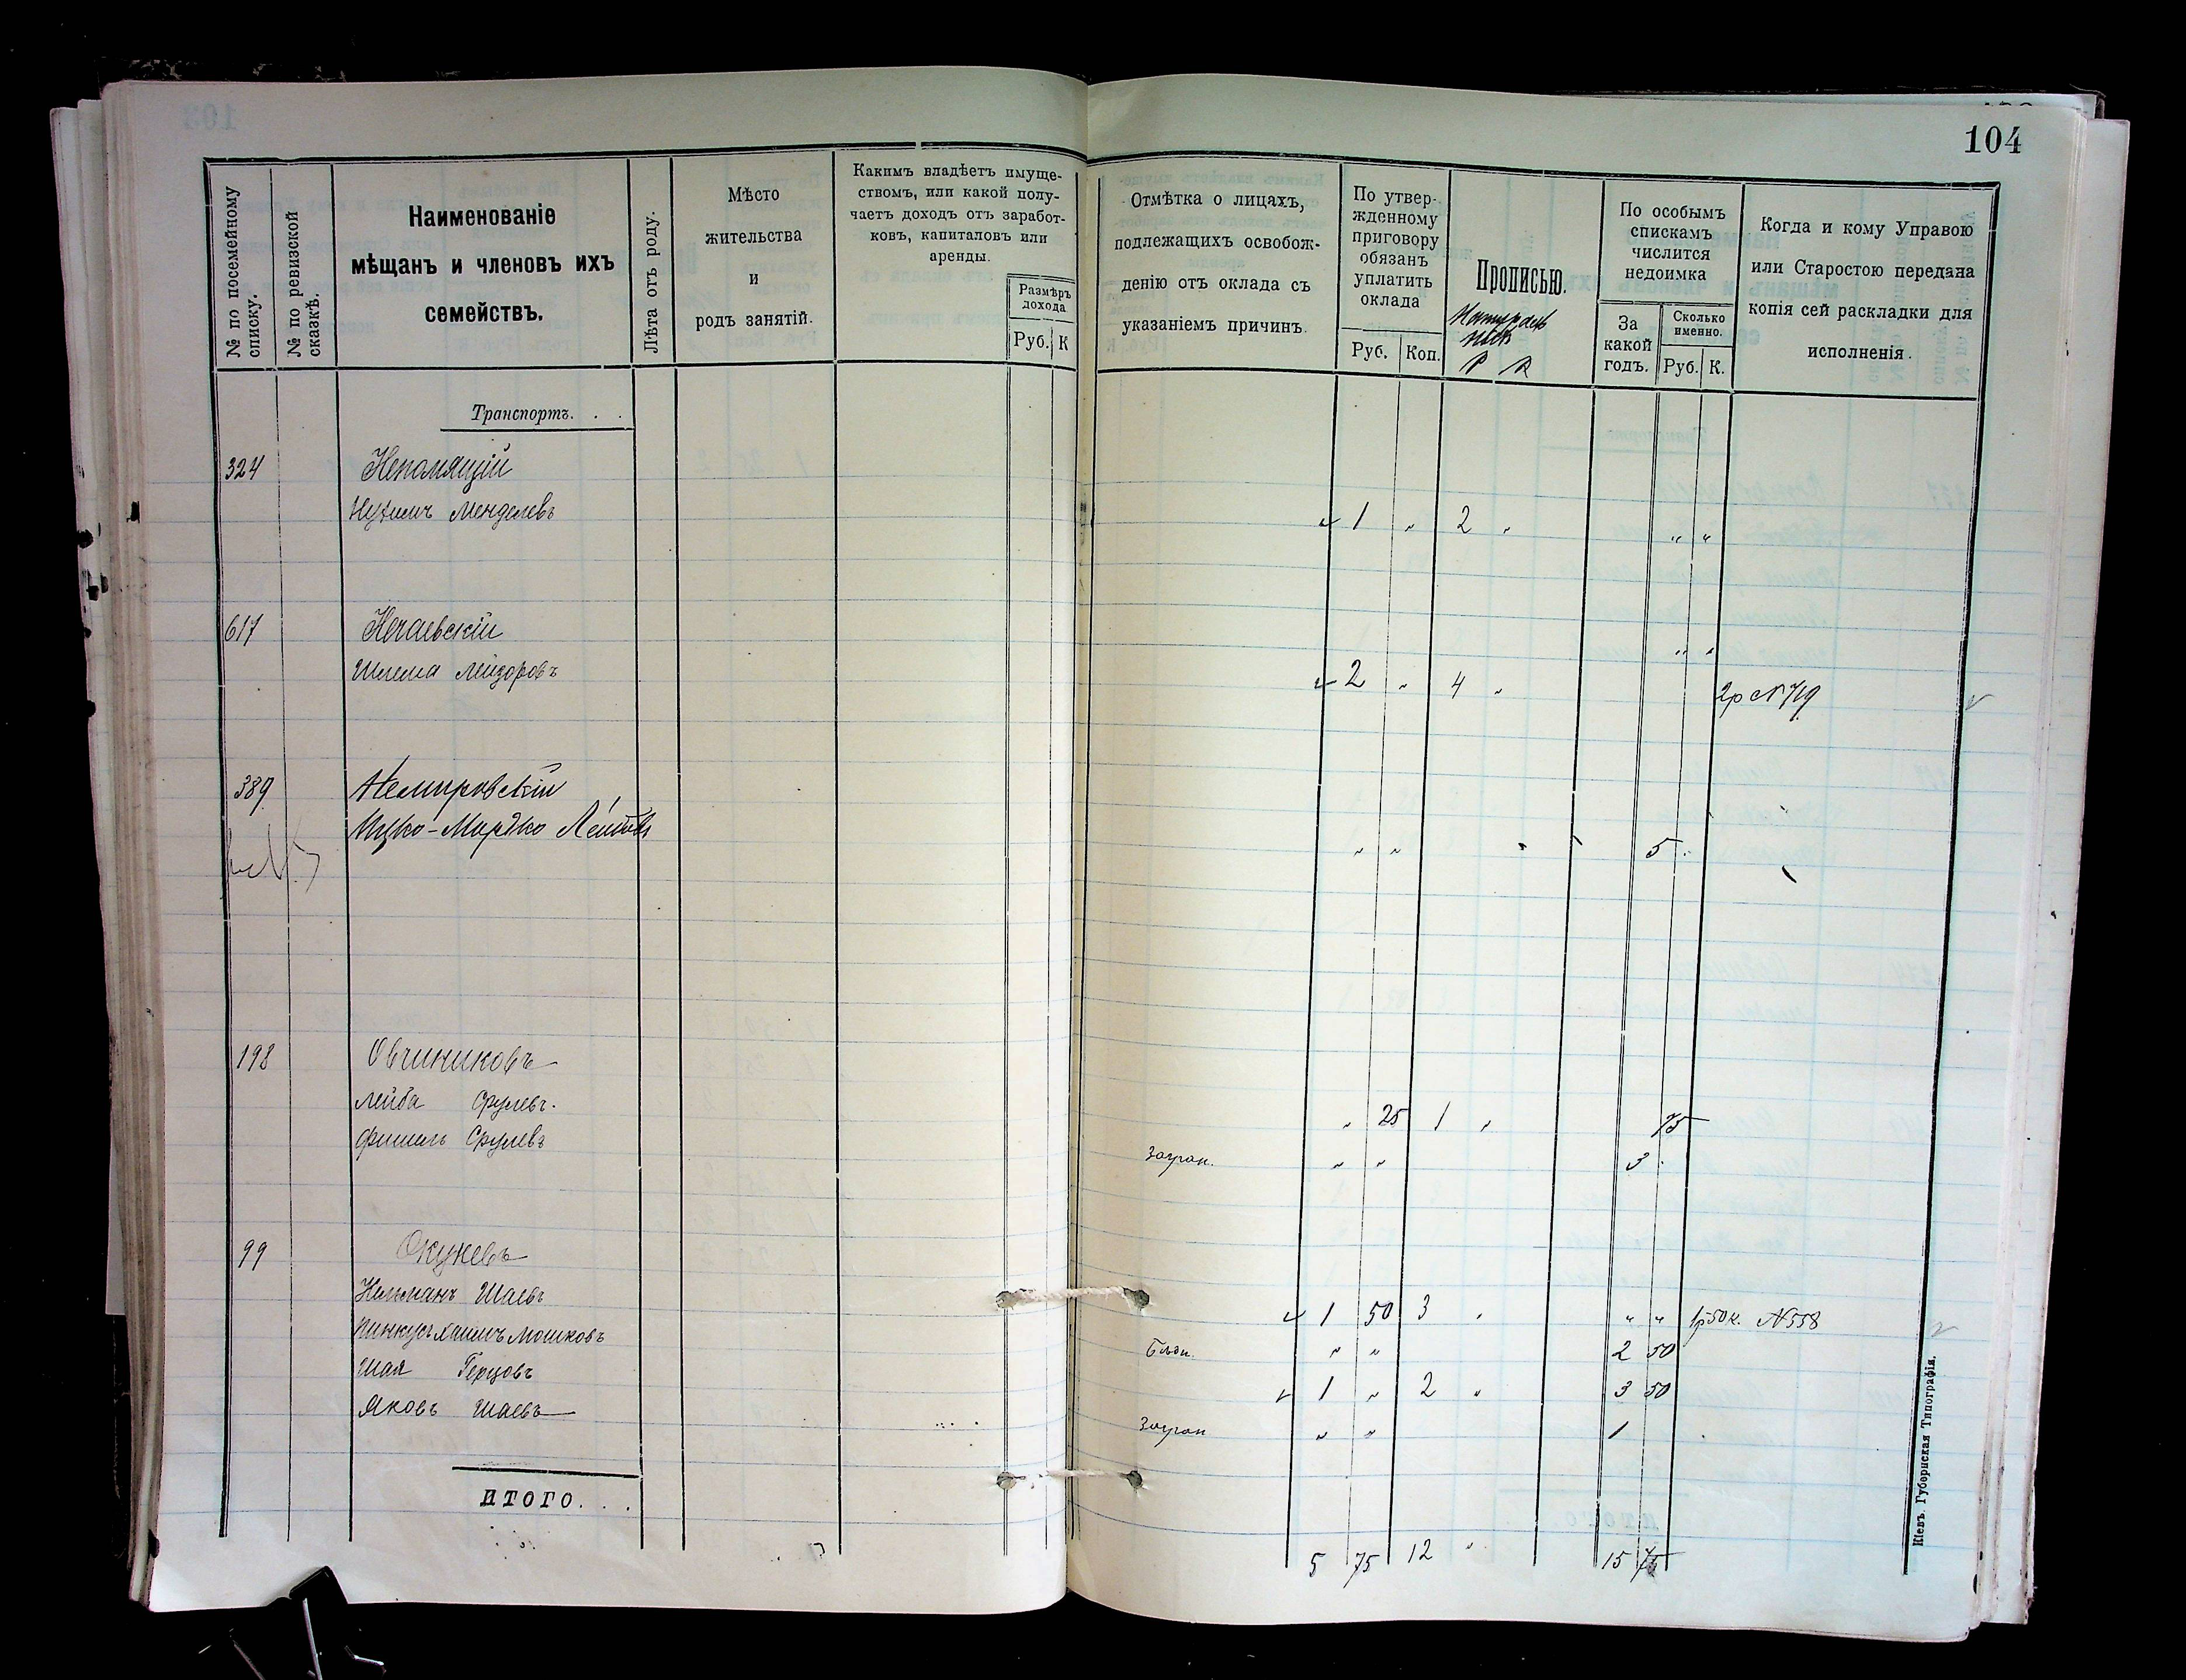 104
№ по посемейному списку.
№ по ревизской сказкѣ.
Наименованіе
мѣщанъ и членовъ ихъ
семействъ.
Лѣта отъ роду.
Мѣсто
жительства
и
родъ занятій.
Какимъ владѣетъ имуще-
ствомъ, или какой полу-
чаетъ доходъ отъ заработ-
ковъ, капиталовъ или
аренды.
Размѣръ
дохода
Руб. К
Отмѣтка о лицахъ,
подлежащихъ освобож-
денію отъ оклада съ
указаніемъ причинъ.
По утвер-
жденному
приговору
обязанъ
уплатить
оклада
Руб. Коп.
Прописью.
Р К
По особымъ
спискамъ
числится
недоимка
За
какой
годъ.
Сколько
именно.
Руб. К.
Когда и кому Управою
или Старостою передана
копія сей раскладки для
исполненія.
Транспортъ. . .
324 Непомящій
Нухимъ Менделевъ 1 „ 2 „ „ „
617 Нечаевскій „ „
Шлема Лейзоровъ 2 „ 4 „ 2р N 719
389 Немировскій
Ицко-Мордко „ „ 5
198 Овчиниковъ
Лейба Срулевъ. „ 25 1 „ 75
Фишель Срулевъ Загран. „ „ 3
99 Окуневъ
Шаевъ 1 50 3 „ „ „ 1р50к. N558
Пинкусъ Хаимъ Мошковъ „ „ 2 50
Шая Герцовъ 1 „ 2 „ 3 50
Яковъ Шаевъ Загран „ „ 1
ИТОГО. . .
5 75 12 „ 15 75
Кіевъ. Губернская Типографія.